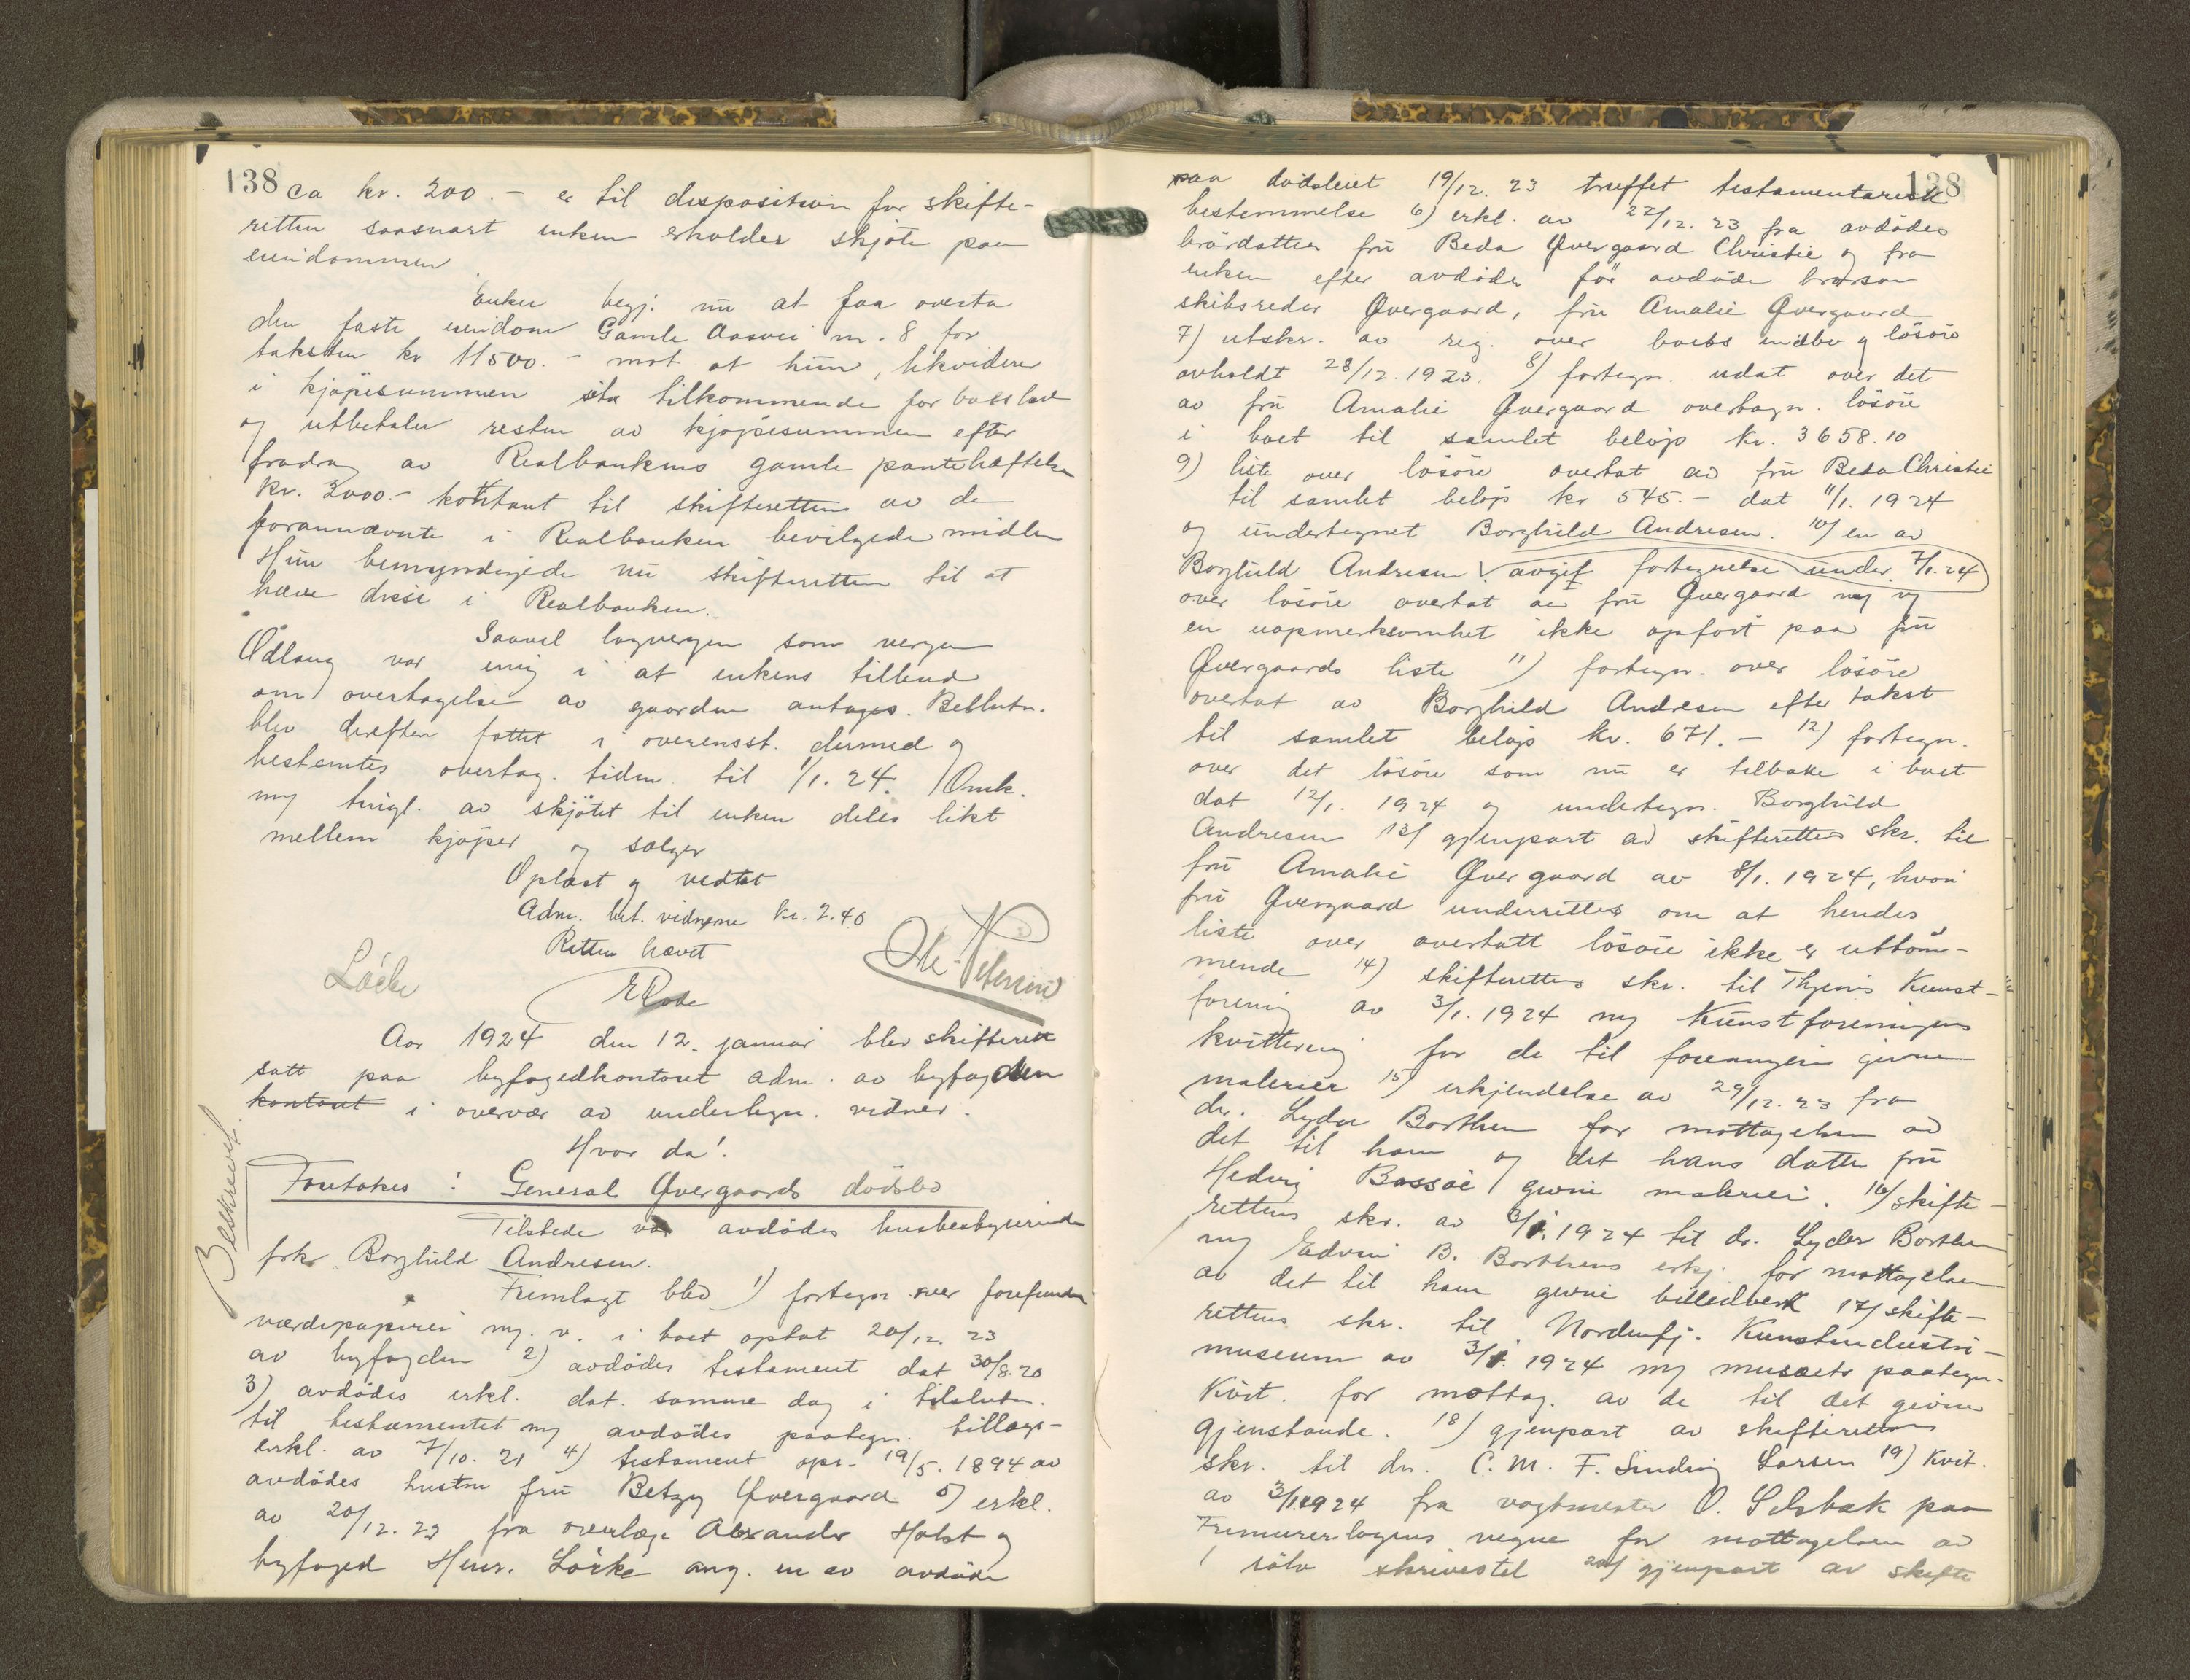 138
ca kr. 200.- er til disposition for skifte-
retten saasnart enken erholder skjøte paa
eiendommen
Enken begj. nu at faa overta
den faste eiendom Gamle Aasvei nr. 8 for
taksten kr 11500.- mot at hun, likviderer
i kjøpesummen sit tilkommende for boslod
og utbetaler resten av kjøpesummen efter
fradrag av Realbankens gamle pantehæftelse
kr. 3000.- kontant til skifteretten av de
forannævnte i Realbanken bevilgede midler
Hun bemyndigede nu skifteretten til at
hæve disse i Realbanken.
Saavel lagvergen som vergen
Ødlang var enig i at enkens tilbud
om overtagelse av gaarden antages. Beslutn.
blev derefter fattet i overensst. dermed og
bestemtes overtag. tiden til 1/1. 24. Omk.
m/ tingl. av skjøtet til enken deles likt
mellem kjøper og sælger
Oplæst og vedtat
Adm. bet. vidnerne kr. 2.40
Retten hævet
Lörke
ERode
Ole Petersen
Aar 1924 den 12. januar blev skifterett
satt paa byfogedkontoret adm. av byfogden
kontoret i overvær av undertegn. vidner.
Hvor da!
Beskrevet.
Foretokes: General Øvergaards dødsbo
Tilstede var avdødes husbestyrerinde
frk. Borghild Andresen.
Fremlagt blev 1) fortegn. over forefundne
værdipapirer m. v. i boet optat 20/12. 23
av byfogden 2) avdødes testament dat 30/8. 20
3) avdødes erkl. dat. samme dag i tilslutn.
til testamentet m/ avdødes paategn. tillægs-
erkl. av 7/10. 21 4) testament opr. 19/5. 1894 av
avdødes hustru fru Betzy Øvergaard 5) erkl.
av 20/12. 23 fra overlæge Alexander Holst og
byfoged Henr. Lörke ang. en av avdøde
138
paa dødsleiet 19/12. 23 truffet testamentarisk
bestemmelse 6) erkl. av 22/12. 23 fra avdødes
brordatter fru Beda Øvergaard Christie og fra
enken efter avdødes før avdøde brorsøn
skibsreder Øvergaard, fru Amalie Øvergaard
7) utskr. av reg. over boets indbo og løsøre
avholdt 28/12. 1923. 8) fortegn. udat over det
av fru Amalie Øvergaard overtagn. løsøre
i boet til samlet beløp kr. 3658.10
9) liste over løsøre overtat av fru Beda Christie
til samlet beløp kr 545.- dat 11/1. 1924
og undertegnet Borghild Andresen. 10) en av
Borghild Andresen avgit fortegnelse under 7/1. 24
over løsøre overtat av fru Øvergaard
en uopmerksomhet ikke opført paa fru
Øvergaards liste 11) fortegn. over løsøre
overtat av Borghild Andresen efter takst
til samlet beløp kr. 671.- 12) fortegn.
over det løsøre som nu er tilbake i boet
dat 12/1. 1924 og undertegn. Borghild
Andresen 13) gjenpart av skifterettens skr. til
fru Amalie Øvergaard av 8/1. 1924, hvori
fru Øvergaard underrettes om at hendes
liste over overtatt løsøre ikke er uttøm-
mende 14) skifterettens skr. til Thjems Kunst-
forening av 3/1. 1924 m/ Kunstforeningens
kvittering for de til foreningen givne
malerier 15) erkjendelse av 29/12. 23 fra
dr. Lyder Borthen for mottagelsen av
det til ham og det hans datter fru
Hedvig Bassøe givne malerier. 16) skifte-
rettens skr. av 3/1. 1924 til dr. Lyder Borthen
m/ Edvin B. Borthens erkj. for mottagelsen
av det til ham givne billedverk 17) skifte-
rettens skr. til Nordenfj. Kunstindustri-
museum av 3/1. 1924 m/ musæets paategn.
kvit. for mottag. av de til det givne
gjenstande. 18) gjenpart av skifterettens
skr. til dr. C. M. F. Sinding Larsen 19) kvit.
av 3/1. 1924 fra vagtmester O. Selsbak paa
Frimurerlogens vegne for mottagelsen av
1 sølv skrivestel 20) gjenpart av skifte